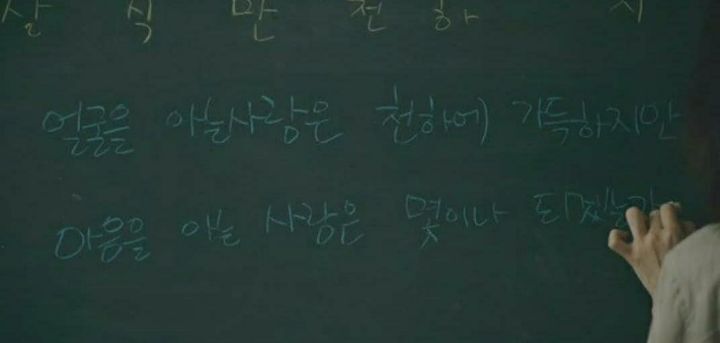 상 식 만 천 하 지
얼굴을 아는사람은 천하에 가득하지만
마음을 아는 사람은 몇이나 되겠는가